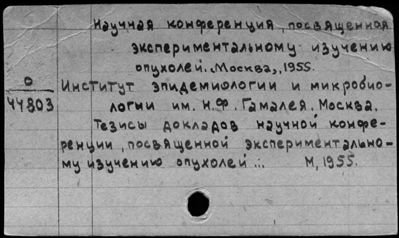 Научная конференция, посвященная
экспериментальному изучению
опухолей. Москва, 1955.
О
44803
Институт эпидемиологии и микробио-
логии им. Н.Ф. Гамалея. Москва.
Тезисы докладов научной конфе-
ренции, посвященной экспериментально-
му изучению опухолей ... М, 1955.